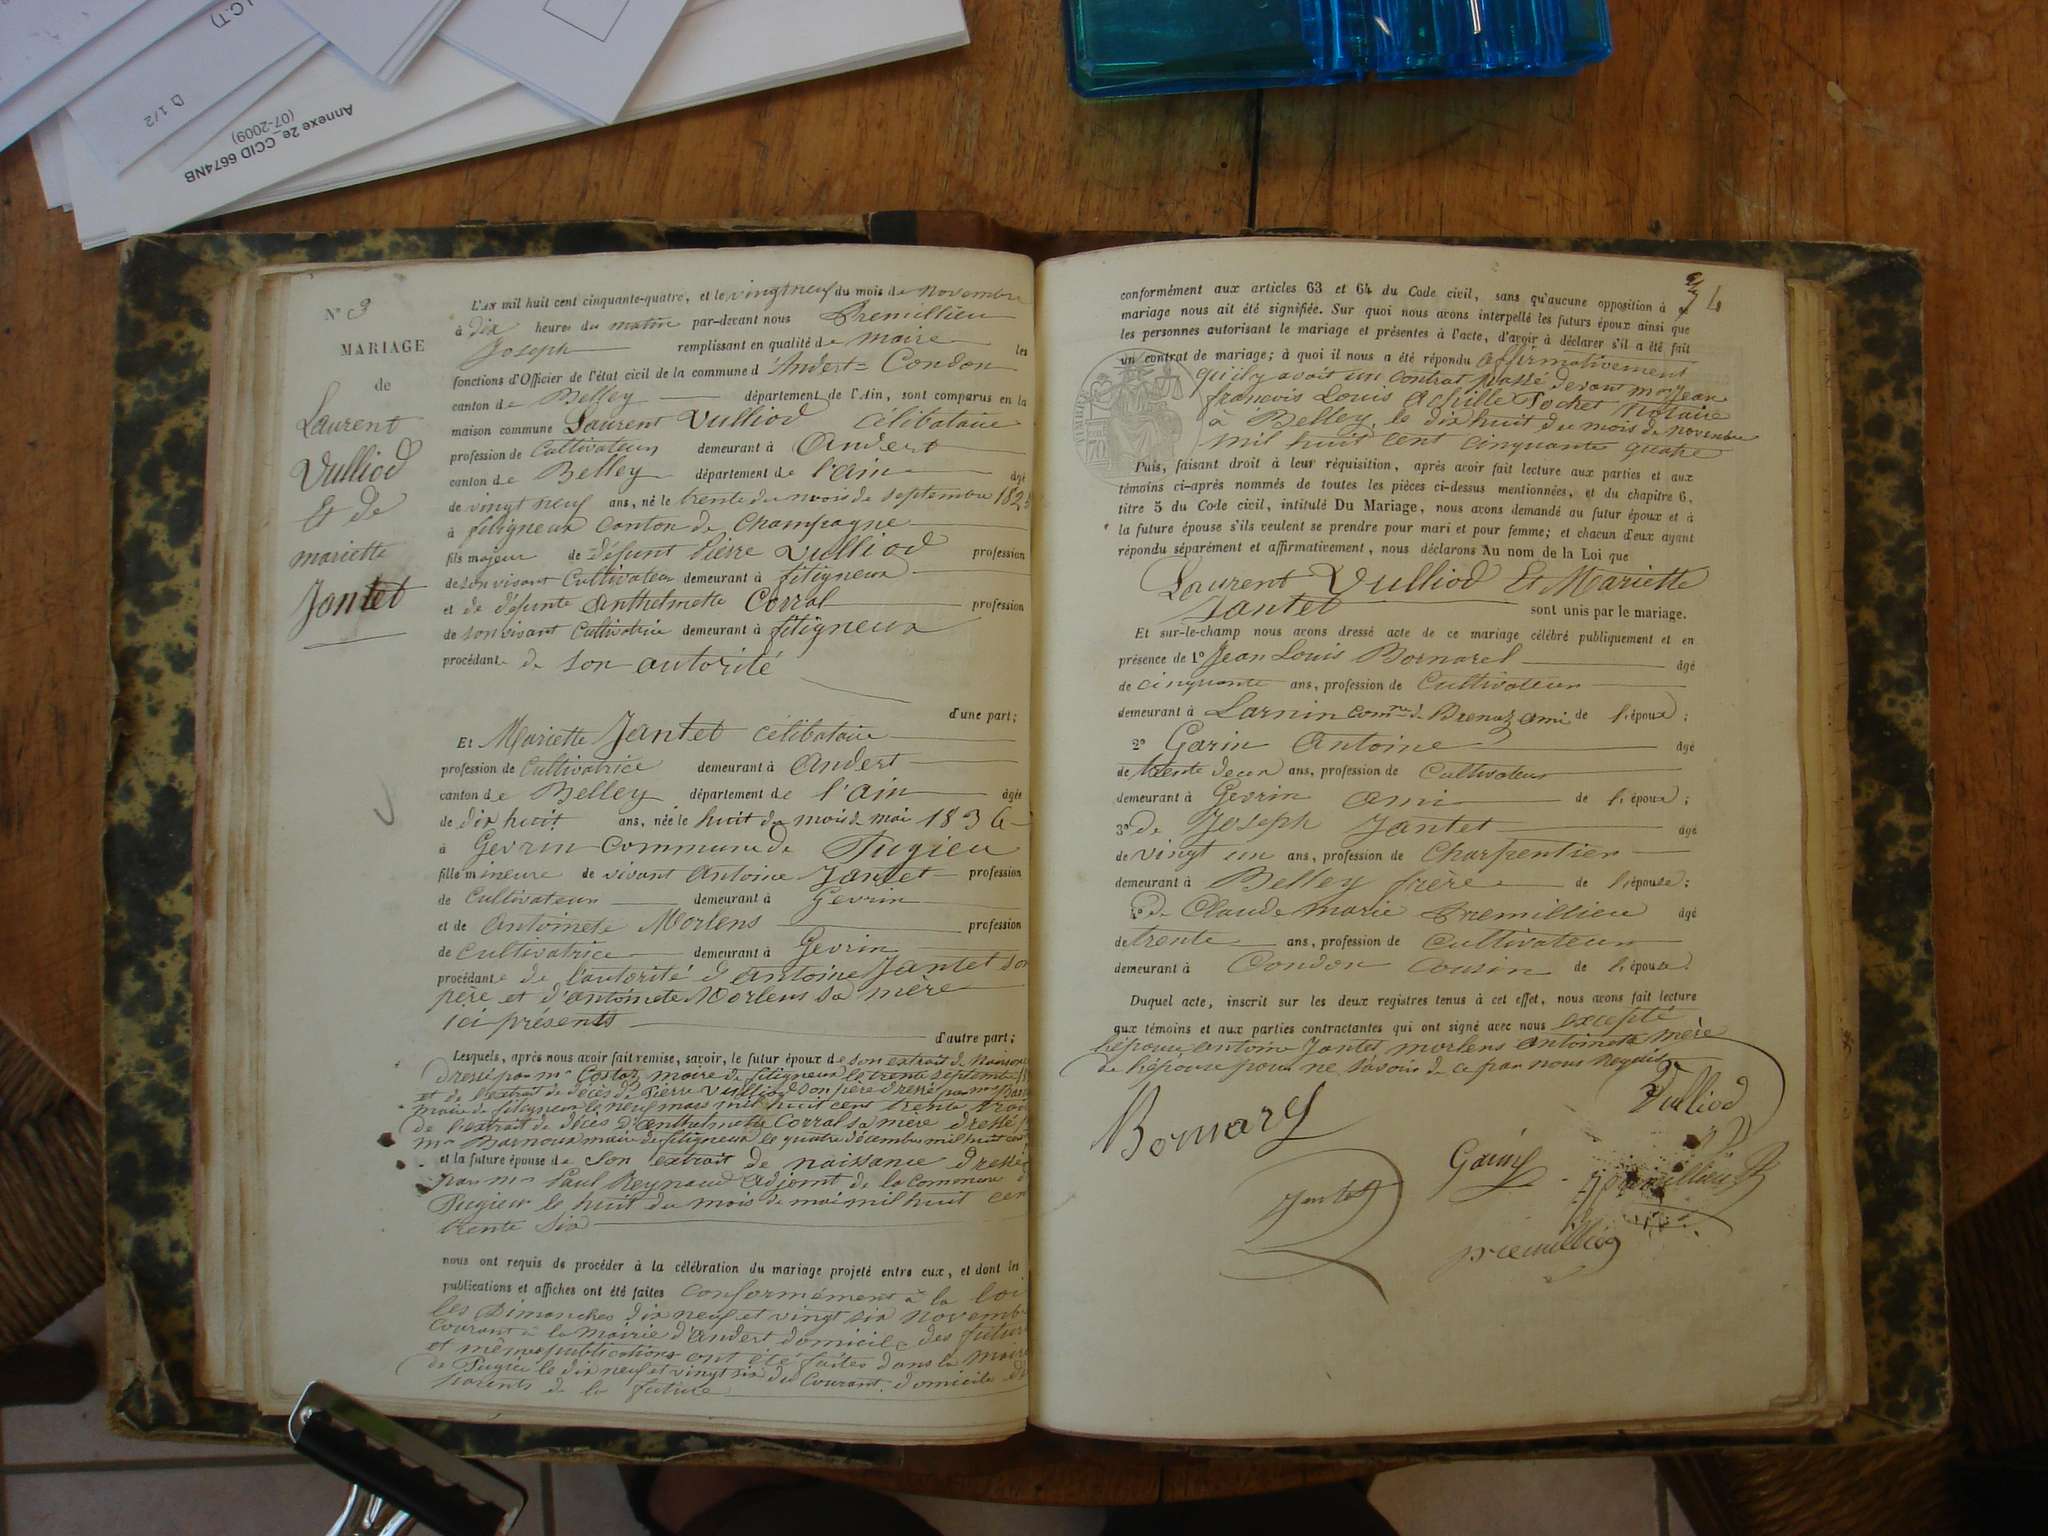 .C.T)
D 1/2
Annexe 2e - CCID 6674NB
(07-2009)
N° 3
MARIAGE
de
Laurent
Vulliod
Et de
mariette
Jantet
L'an mil huit cent cinquante-quatre, et le vingt neuf du mois de novembre
à dix heures du matin par-devant nous Premillieu
Joseph remplissant en qualité de maire les
fonctions d'Officier de l'état civil de la commune d'Andert=Condon
canton de Belley département de l'Ain, sont comparus en la
maison commune Laurent Vulliod célibataire
profession de Cultivateur demeurant à Andert
canton de Belley département de l'ain âgé
de vingt neuf ans, né le trente du mois de septembre 182
à fitigneux canton de Champagne
fils majeur de défunt Pierre Vulliod profession
de son vivant Cultivateur demeurant à fitigneux
et de défunte Anthelmette Corral profession
de son vivant Cultivatrice demeurant à fitigneux
procédant de son autorité
d'une part;
Et Mariette Jantet célibataire
profession de Cultivatrice demeurant à Andert
canton de Belley département de l'ain âgée
de dix huit ans, née le huit du mois de mai 1836
à Gevrin Commune de Pugieu
fille mineure de vivant Antoine Jantet profession
de Cultivateur demeurant à Gevrin
et de Antoinete Morlens profession
de cultivatrice demeurant à Gevrin
procédante de l'autorité d'antoine Jantet son
père et d'antoinete Morlens sa mère
ici présents
d'autre part;
Lesquels, après nous avoir fait remise, savoir, le futur époux de son extrait de naissance
Dressé par mr Costaz maire de fitigneux le trente septembre
et de l'extrait de décès de Pierre Vulliod son père dressé par mr
maire de fitigneux le neuf mars mil huit cent trente
de l'extrait de décès d'anthelmette Corral sa mère dressé
mr Barnoux maire de fitigneux le quatre décembre mil huit cent
et la future épouse de son extrait de naissance dressé
par mr Paul Reynaud adjoint de la Commune
Pugieu le huit du mois de mai mil huit cent
trente six
nous ont requis de procéder à la célébration du mariage projeté entre eux, et dont les
publications et affiches ont été faites conformément à la loi
les Dimanches dix neuf et vingt six novembre
courant à la mairie d'Andert domicile des futurs
et mêmes publications ont été faites dans la mairie
de Pugieu le dix neuf et vingt six du Courant domicile des
parents de la future
74
conformément aux articles 63 et 64 du Code civil, sans qu'aucune opposition à
mariage nous ait été signifiée. Sur quoi nous avons interpellé les futurs époux ainsi que
les personnes autorisant le mariage et présentes à l'acte, d'avoir à déclarer s'il a été fait
un contrat de mariage; à quoi il nous a été répondu affirmativement
qu'il y avait un contrat passé devant me Jean
francois Louis Achille Sochet Notaire
à Belley, le dix huit du mois de novembre
mil huit cent cinquante quatre
Puis, faisant droit à leur réquisition, après avoir fait lecture aux parties et aux
témoins ci-après nommés de toutes les pièces ci-dessus mentionnées, et du chapitre 6,
titre 5 du Code civil, intitulé Du Mariage, nous avons demandé au futur époux et à
la future épouse s'ils veulent se prendre pour mari et pour femme; et chacun d'eux ayant
répondu séparément et affirmativement, nous déclarons Au nom de la Loi que
Laurent Vulliod Et Mariette
Jantet sont unis par le mariage.
Et sur-le-champ nous avons dressé acte de ce mariage célébré publiquement et en
présence de 1° Jean Louis Bornarel âgé
de cinquante ans, profession de Cultivateur
demeurant à Larnin comne de Brenaz ami de l'époux;
2° Garin Antoine âgé
de trente deux ans, profession de Cultivateur
demeurant à Gevrin ami de l'époux;
3° de Joseph Jantet âgé
de vingt un ans, profession de Charpentier
demeurant à Belley frère de l'épouse;
4° de Claude marie Premillieu âgé
de trente ans, profession de Cultivateur
demeurant à Condon Cousin de l'épouse.
Duquel acte, inscrit sur les deux registres tenus à cet effet, nous avons fait lecture
aux témoins et aux parties contractantes qui ont signé avec nous excepté
l'épouse antoine Jantet morlens antoinete mère
de l'épouse pour ne savoir de ce par nous requis
Vulliod
Bornarel
Garin
Jantet
Premillieu
premillieu